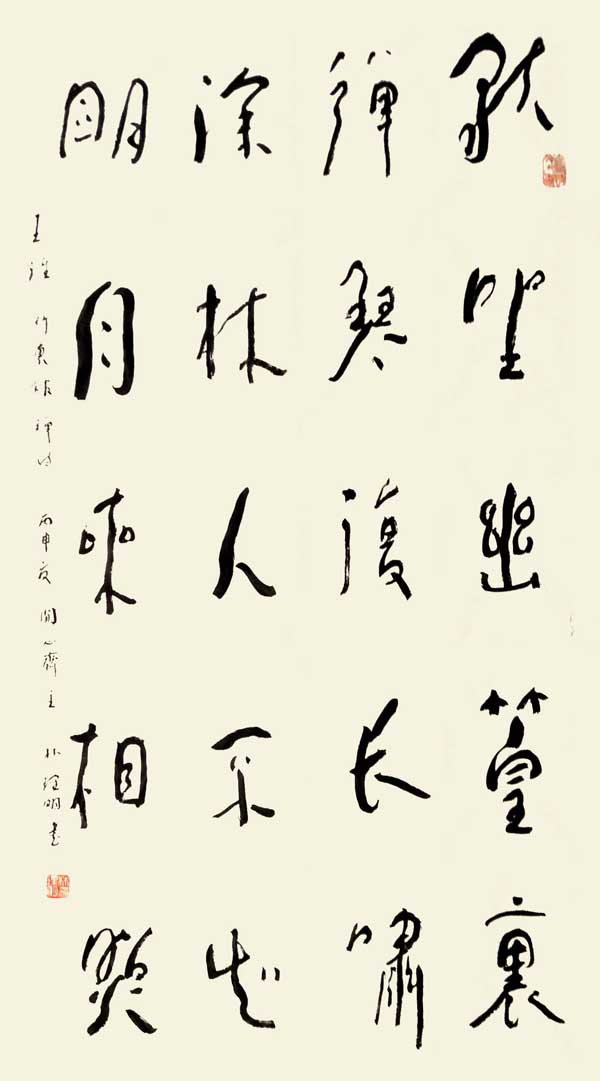 獨坐幽篁裏
彈琴復长嘯
深林人不知
明月來相照
王維作 禪詩 丙申夏 閒心齋主 明書